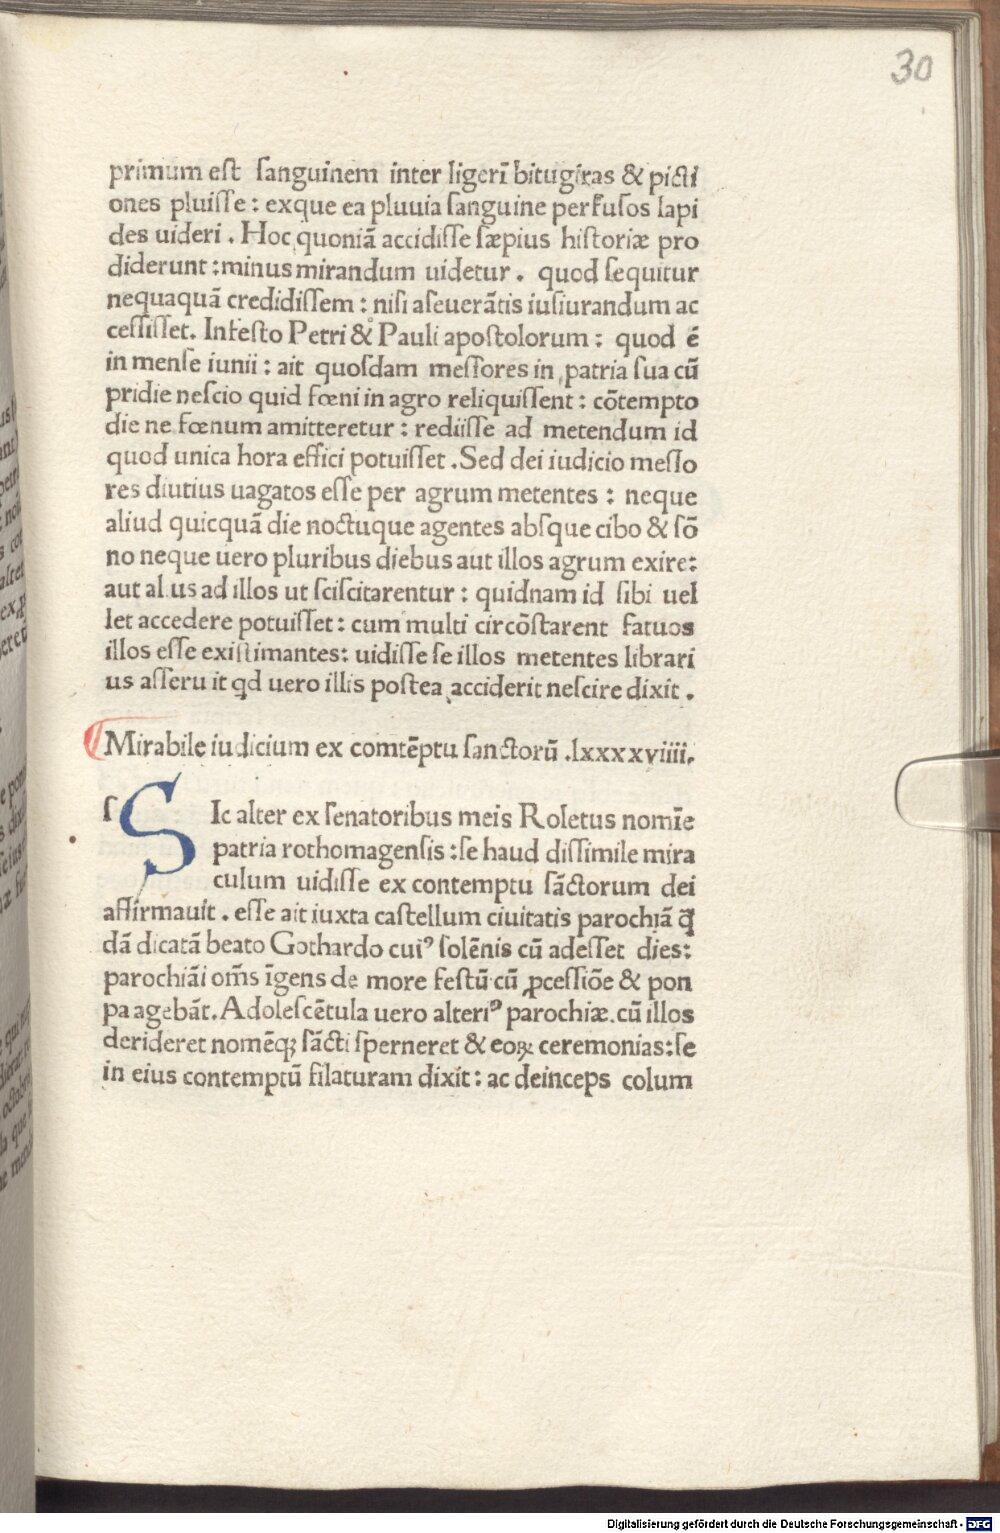 30
primum est sanguinem inter ligerī bitugiras & picti
ones pluisse : exque ea pluuia sanguine perfusos lapi
des uideri . Hoc quoniā accidisse sæpius historiæ pro
diderunt : minus mirandum uidetur . quod sequitur
nequaquā credidissem : nisi aseuerātis iusiurandum ac
cessisset. In festo Petri & Pauli apostolorum : quod ē
in mense iunii : ait quosdam messores in patria sua cū
pridie nescio quid fœni in agro reliquissent : cōtempto
die ne fœnum amitteretur : rediisse ad metendum id
quod unica hora effici potuisset . Sed dei iudicio messo
res diutius uagatos esse per agrum metentes : neque
aliud quicquā die noctuque agentes absque cibo & sō
no neque uero pluribus diebus aut illos agrum exire:
aut al us ad illos ut sciscitarentur : quidnam id sibi uel
let accedere potuisset : cum multi circōstarent fatuos
illos esse existimantes: uidisse se illos metentes librari
us asseru it qd uero illis postea acciderit nescire dixit .
¶Mirabile iudicium ex comtēptu sanctorū .lxxxxviiii.
s SIc alter ex senatoribus meis Roletus nomīe
patria rothomagensis : se haud dissimile mira
culum uidisse ex contemptu sāctorum dei
affirmauit . esse ait iuxta castellum ciuitatis parochiā q̄
dā dicatā beato Gothardo cuiꝰ solēnis cū adesset dies:
parochiāi om̄s īgens de more festū cū ꝓcessiōe & pon
pa agebāt. Adolescētula uero alteriꝰ parochiæ cū illos
derideret nomēqꝫ sācti sperneret & eoꝝ ceremonias: se
in eius contemptū filaturam dixit : ac deinceps colum
Digitalisierung gefördert durch die Deutsche Forschungsgemeinschaft - DFG